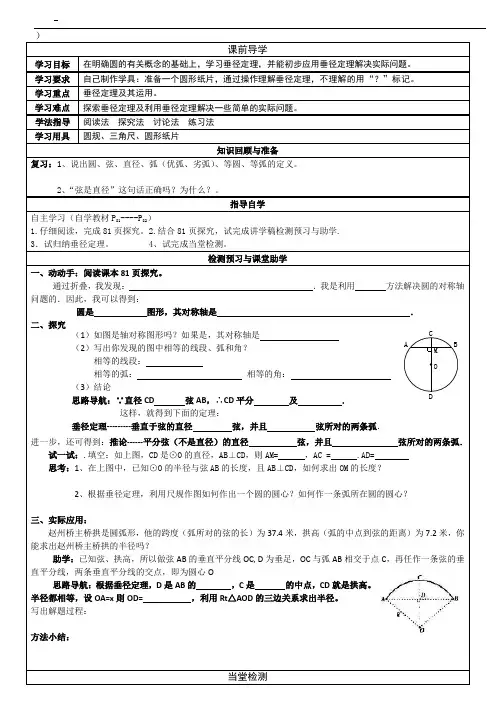 -
）
课前导学
学习目标 在明确圆的有关概念的基础上，学习垂径定理，并能初步应用垂径定理解决实际问题。
学习要求 自己制作学具：准备一个圆形纸片，通过操作理解垂径定理，不理解的用“？”标记。
学习重点 垂径定理及其运用。
学习难点 探索垂径定理及利用垂径定理解决一些简单的实际问题。
学法指导 阅读法 探究法 讨论法 练习法
学习用具 圆规、三角尺、圆形纸片
知识回顾与准备
复习：1、说出圆、弦、直径、弧（优弧、劣弧）、等圆、等弧的定义。
2、“弦是直径”这句话正确吗？为什么？。
指导自学
自主学习（自学教材P81----P82）
1.仔细阅读，完成81页探究。2.结合81页探究，试完成讲学稿检测预习与助学.
3．试归纳垂径定理。 4、试完成当堂检测。
检测预习与课堂助学
一、动动手：阅读课本81页探究。
通过折叠，我发现： ．我是利用 方法解决圆的对称轴
问题的．因此，我可以得到：
圆是 图形，其对称轴是 ．
二、探究
（1）如图是轴对称图形吗？如果是，其对称轴是
（2）写出你发现的图中相等的线段、弧和角？
相等的线段：
相等的弧： 相等的角：
（3）结论
C
A
B
M
O
D
思路导航：∵直径CD 弦AB，∴CD平分 及 ．
这样，就得到下面的定理：
垂径定理---------垂直于弦的直径 弦，并且 弦所对的两条弧.
进一步，还可得到：推论------平分弦（不是直径）的直径 弦，并且 弦所对的两条弧．
试一试：.填空：如上图，CD是⊙O的直径，AB⊥CD，则AM= ，AC = .AD=
思考：1、在上图中，已知⊙O的半径与弦AB的长度，且AB⊥CD，如何求出OM的长度？
2、根据垂径定理，利用尺规作图如何作出一个圆的圆心？如何作一条弧所在圆的圆心？
三、实际应用：
赵州桥主桥拱是圆弧形，他的跨度（弧所对的弦的长）为37.4米，拱高（弧的中点到弦的距离）为7.2米，你
能求出赵州桥主桥拱的半径吗？
助学：已知弦、拱高，所以做弦AB的垂直平分线OC, D为垂足，OC与弧AB相交于点C，再任作一条弦的垂
直平分线，两条垂直平分线的交点，即为圆心O
思路导航：根据垂径定理，D是AB的 ，C是 的中点，CD就是拱高。
半径都相等，设OA=x则OD= ，利用Rt△AOD的三边关系求出半径。
写出解题过程：
C
A
D
B
R
O
方法小结：
当堂检测